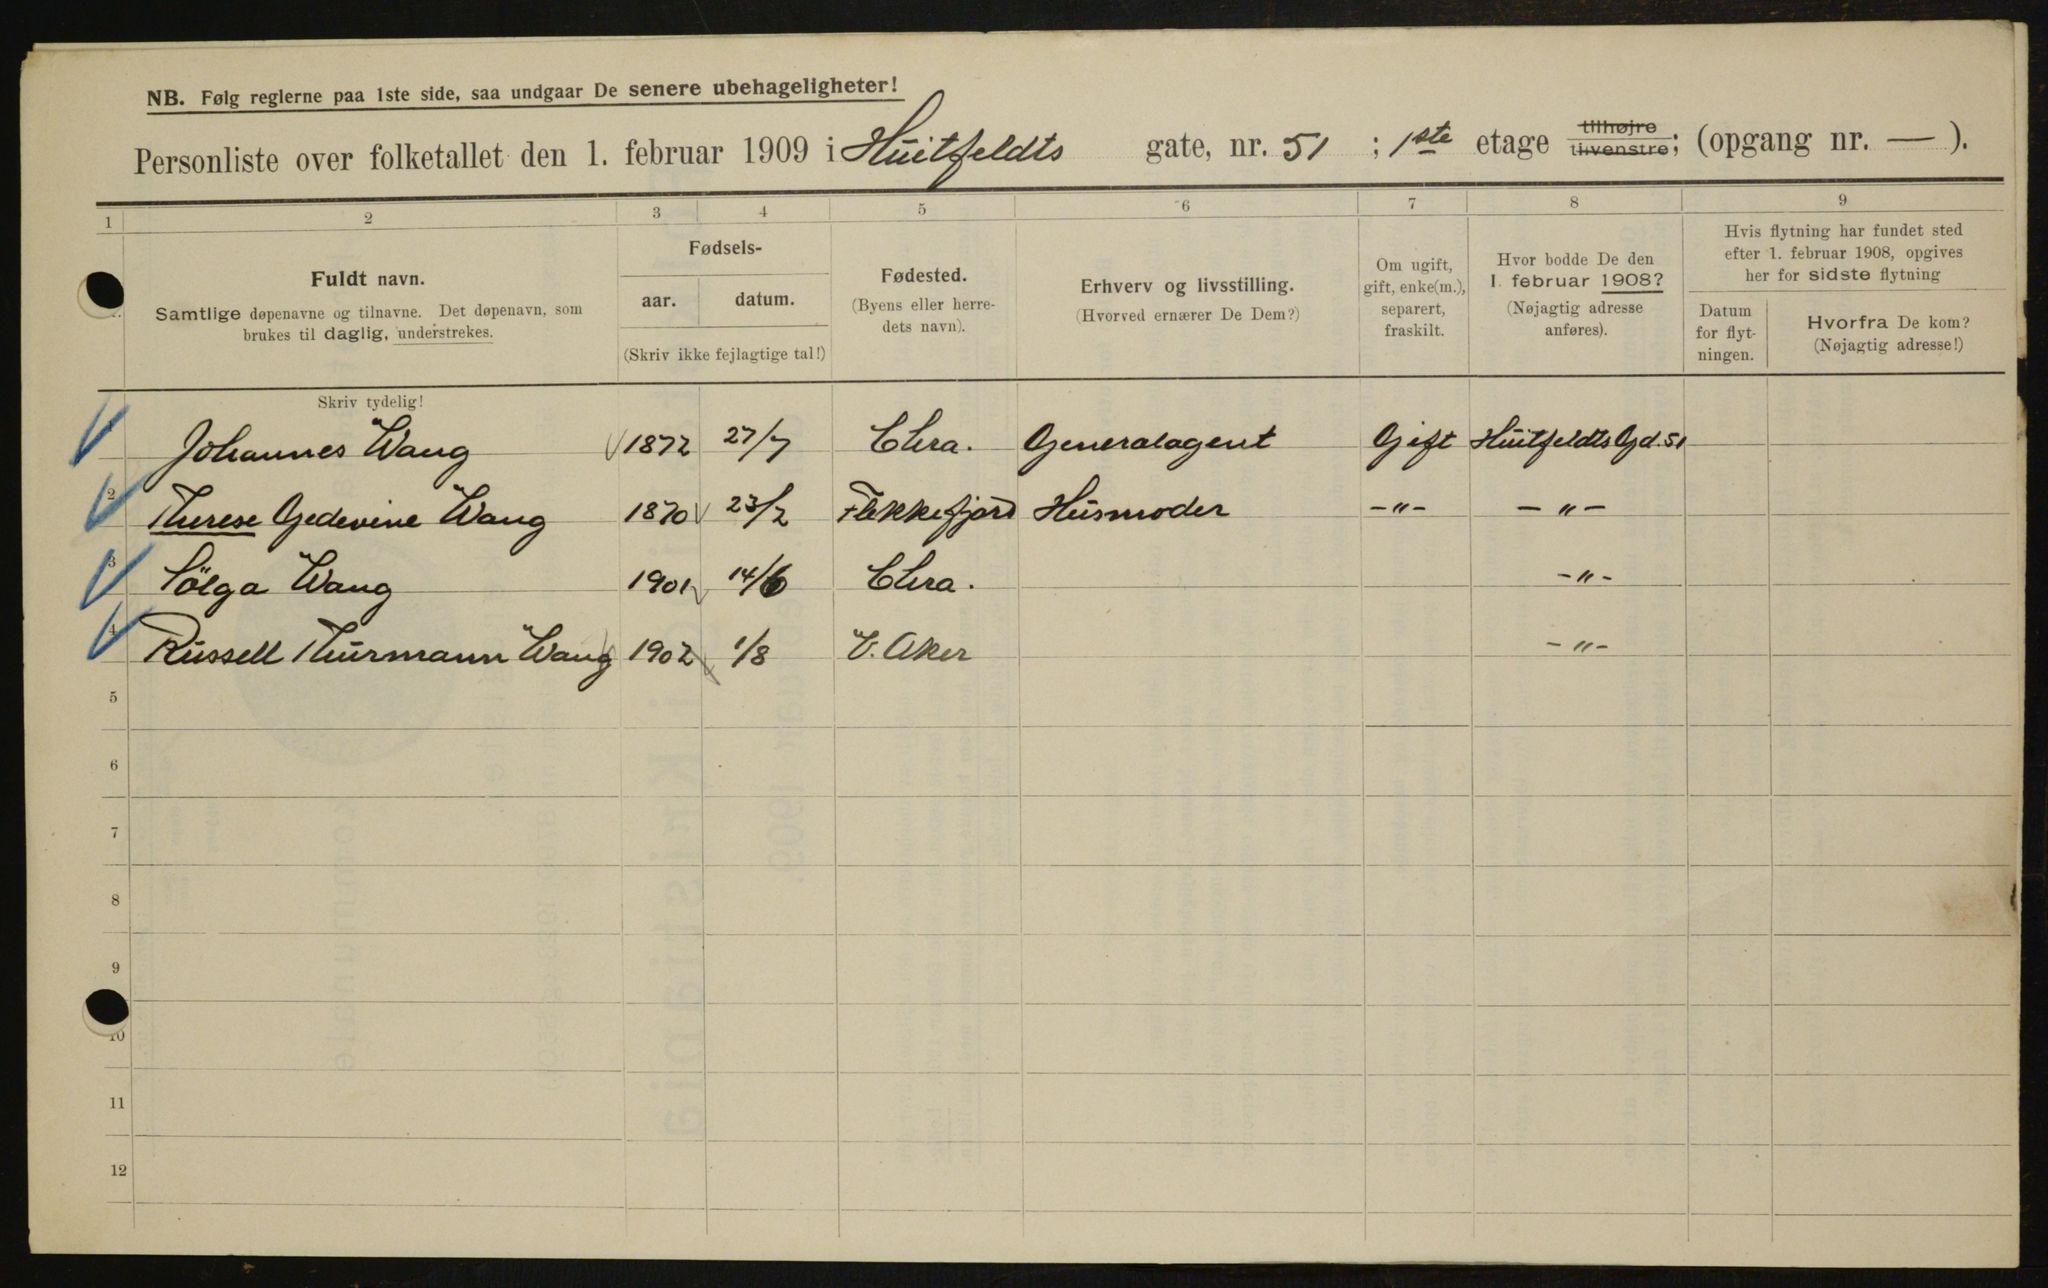 NB. Følg reglerne paa 1ste side, saa undgaar De senere ubehageligheter!
Personliste over folketallet den 1. februar 1909 i Huitfeldts gate, nr. 51 ; 1ste etage tilhøjre tilvenstre; (opgang nr. — ).
1 2 3 4 5 6 7 8 9
Fuldt navn.
Samtlige døpenavne og tilnavne. Det døpenavn, som
brukes til daglig, understrekes.
Fødsels-
aar. datum.
(Skriv ikke fejlagtige tal!)
Fødested.
(Byens eller herre-
dets navn).
Erhverv og livsstilling.
(Hvorved ernærer De Dem?)
Om ugift,
gift, enke(m.),
separert,
fraskilt.
Hvor bodde De den
1. februar 1908?
(Nøjagtig adresse
anføres).
Hvis flytning har fundet sted
efter 1. februar 1908, opgives
her for sidste flytning
Datum
for flyt-
ningen.
Hvorfra De kom?
(Nøjagtig adresse!)
Skriv tydelig!
Johannes Wang 1872 27/7 Chra. Generalagent Gift Huitfeldts Gd. 51
2 Therese Gedevine Wang 1870 23/2 Flekkefjord Husmoder -"- -"-
3 Sölga Wang 1901 14/6 Chra. -"-
4 Russell Thurmann Wang 1902 1/8 V. Aker -"-
5
6
7
8
9
10
11
12